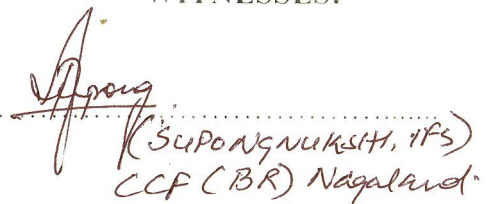 WITNESSES:
Supong
(SUPONGNUKSHI, IFS)
CCF (BR) Nagaland.